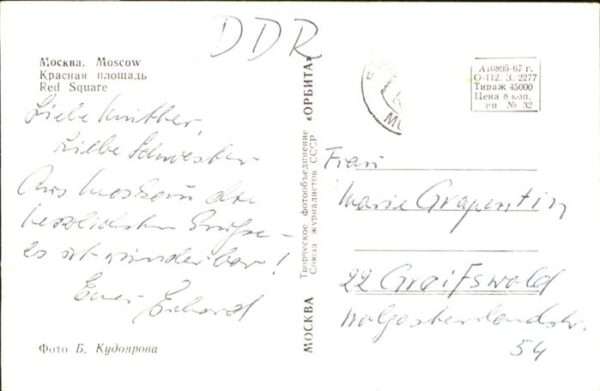 DDR
Москва. Moscow
Красная площадь
Red Square
Liebe Mutter,
Liebe Schwester
Aus Moskau die
herzlichsten Grüße –
es ist wunderbar!
Euer Erhard
Фото Б. Кудоярова
МОСКВА Творческое фотообъединение «ОРБИТА»
Союза журналистов СССР
А10805-67 г.
О-112. З. 2277
Тираж 45000
Цена 8 коп.
№ 32
Frau
Marie Grapentin
22 Greifswald
Wolgasterlandstr.
54